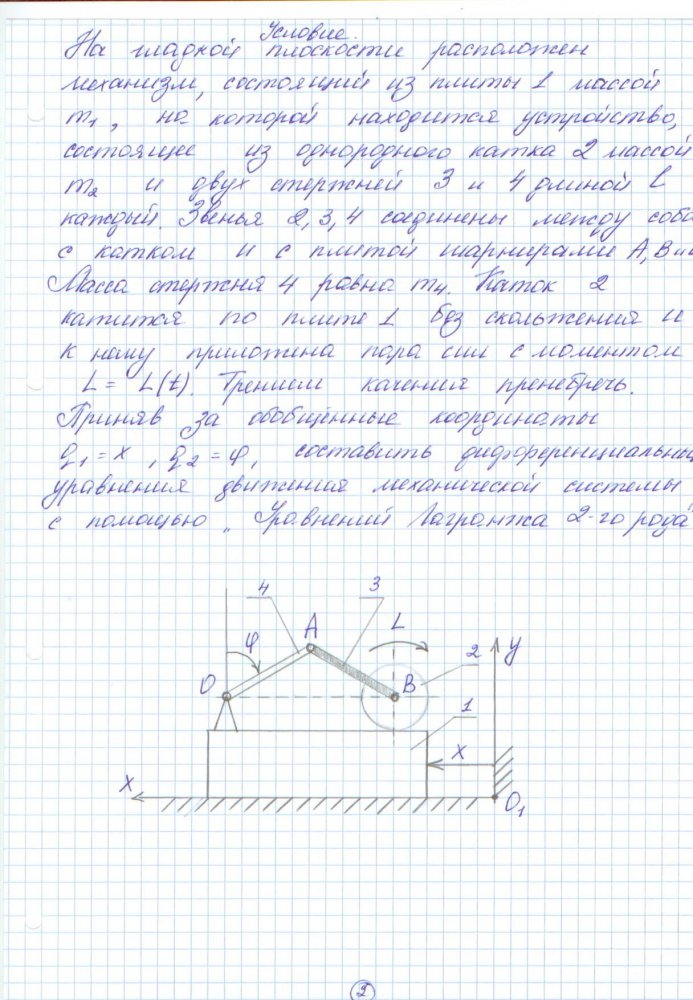 Условие.
На гладкой плоскости расположен
механизм, состоящий из плиты 1 массой
m₁, на которой находится устройство,
состоящее из однородного катка 2 массой
m₂ и двух стержней 3 и 4 длиной l
каждый. Звенья 2, 3, 4 соединены между собо
с катком и с плитой шарнирами А, В и
Масса стержня 4 равна m₄. Каток 2
катится по плите 1 без скольжения и
к нему приложена пара сил с моментом
L = L(t). Трением качения пренебречь.
Приняв за обобщённые координаты
q₁ = x, q₂ = φ, составить дифференциальны
уравнения движения механической системы
с помощью „Уравнений Лагранжа 2-го рода"
4 3
A L
φ 2 y
O B
1
x
x O₁
2